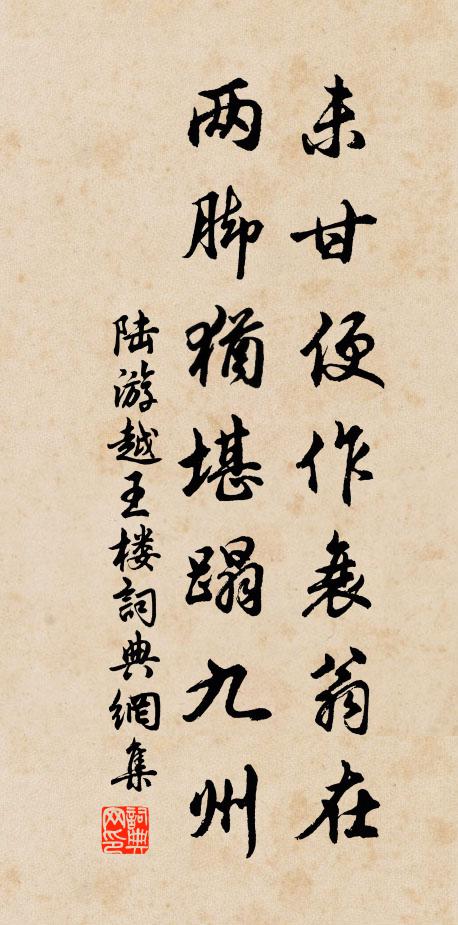 未甘便作衰翁在
两脚猶堪蹋九州
陆游越王楼詞典網集
詞典网印